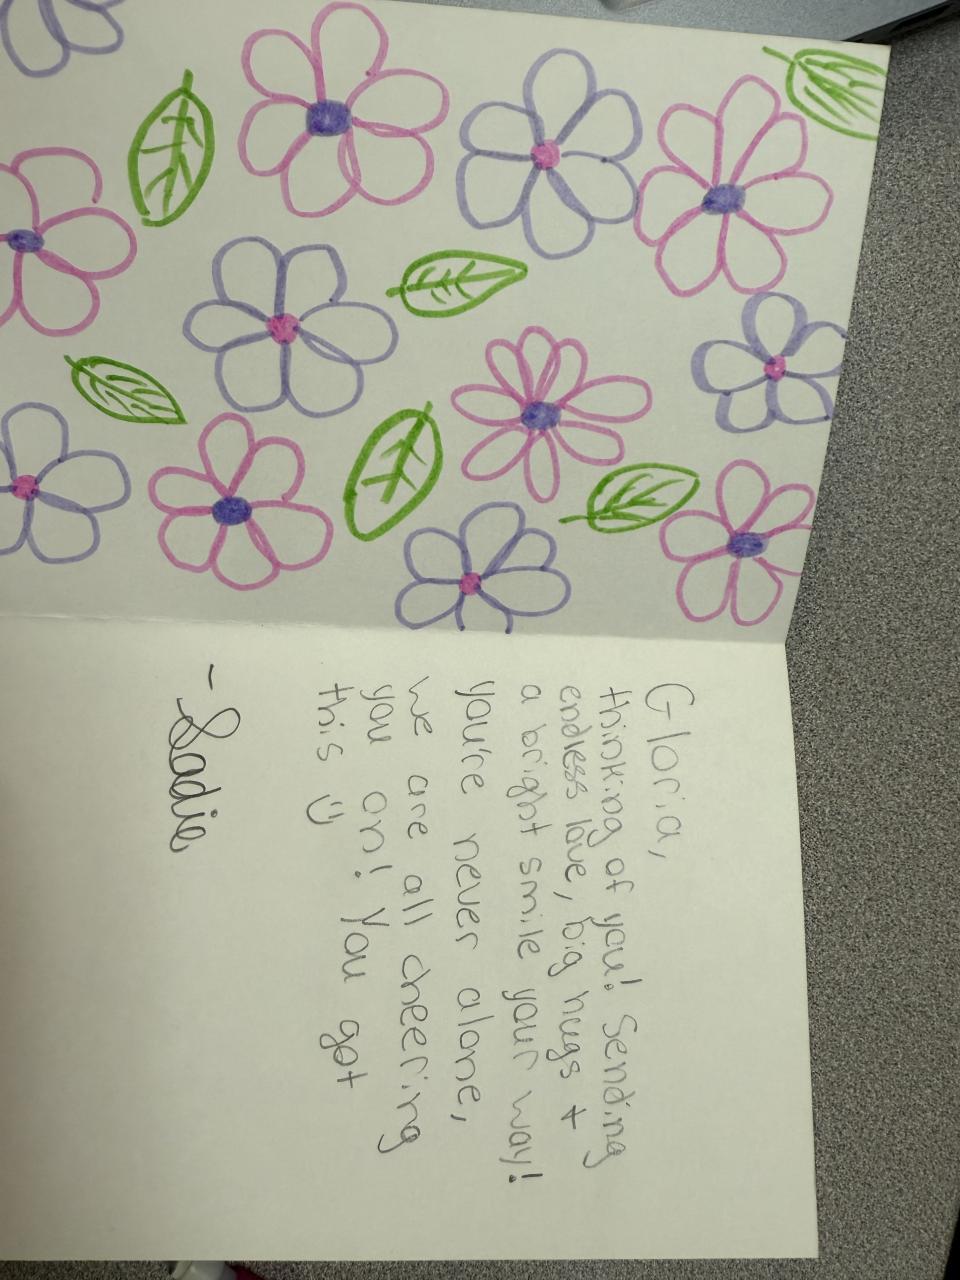 Gloria,
thinking of you! Sending
endless love, big hugs +
a bright smile your way!
you're never alone,
we are all cheering
you on! You got
this :)
-Sadie